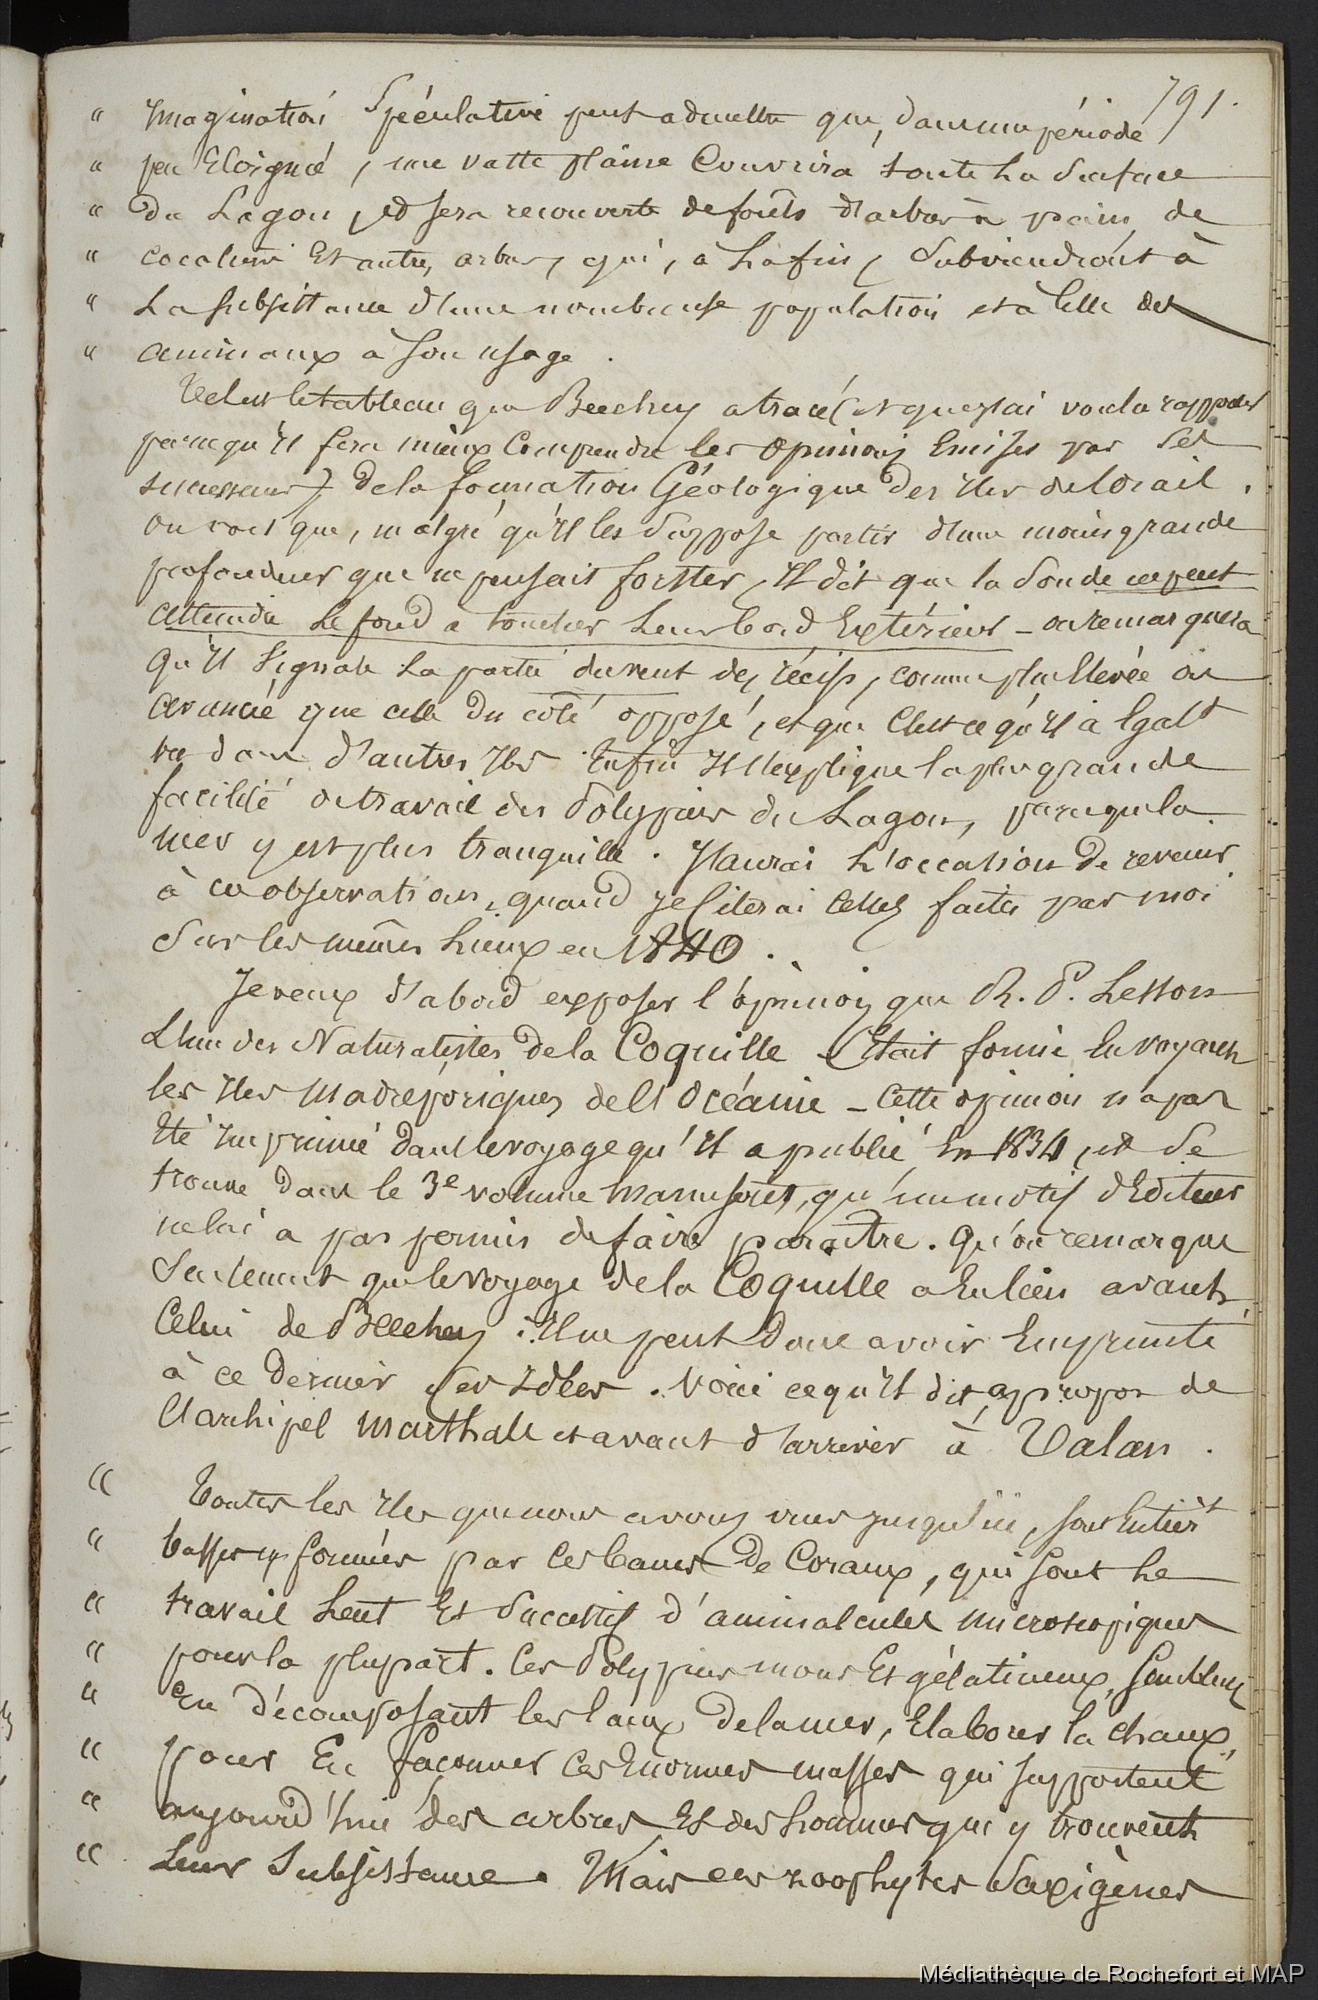 791.
" Imagination Spéculative peut admettre que, dans une période
" peu Eloignée, une vaste plaine Couvrira toute La Surface
" du Lagon, et sera recouverte de forêts d'arbres à pain, de
" cocotiers Et autres arbres, qui, à La fin, Subviendront à
" La subsistance d'une nombreuse population et à Celle des
" animaux à son usage.
Tel est le tableau que Beechey a tracé (et que j'ai voulu rapporter
parcequ'Il fera mieux Comprendre les opinions Emises par Ses
successeurs) de la formation Géologique des Iles de Corail.
On voit que, malgré qu'Il les Suppose partir d'une moins grande
profondeur que ne pensait forster, Il dit que la Sonde ne peut
atteindre Le fond a toucher Leur bord Extérieur - on remarquera
qu'Il Signale La partie du vent des récifs, comme plus Elevée ou
avancée que celle du côté opposé, et que C'est ce qu'Il a Egalt
vu dans d'autres Iles. Enfin Il explique la plus grande
facilité de travail des Polypiers du Lagon, parceque la
mer y est plus tranquille. J'aurai L'occasion de revenir
à ces observations, quand je Citerai Celles faites par moi
Sur les mêmes Lieux en 1840.
Je veux d'abord exposer l'opinion que R. P. Lesson
L'un des Naturalistes de la Coquille S'était formée En voyant
les Iles Madréporiques de l'Océanie - Cette opinion n'a pas
Eté Imprimée dans le voyage qu'Il a publié En 1834, et Se
trouve dans le 3e volume Manuscrit, qu'un motif d'Editeur
ne lui a pas permis de faire paraître. Qu'on remarque
Seulement que le voyage de la Coquille a Eu lieu avant
Celui de Beechey : Il ne peut donc avoir Emprunté
à ce dernier Ses Idées. Voici ce qu'Il dit, apropos de
L'archipel Marshall et avant d'arriver à Ualan.
" Toutes les Iles que nous avons vues jusqu'ici, sont Entièrt
" basses et formées par Ces bancs de Coraux, qui sont Le
" travail Lent Et Successif d'animalcules microscopiques
" pour la plupart. Ces Polypiers mous Et gélatineux, semblent
" En décomposant les Eaux de la mer, Elaborer la chaux,
" pour En façonner Ces Enormes masses qui supportent
" aujourd'hui des arbres Et des hommes qui y trouvent
" Leur Subsistance. Mais ces zoophytes Saxigènes
Médiathèque de Rochefort et MAP